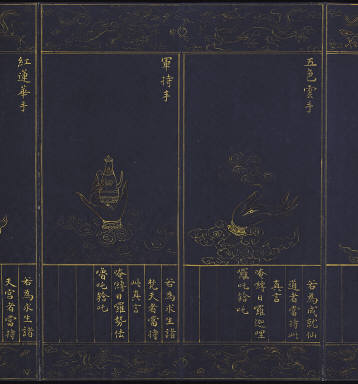 五色雲手
若為成就仙
道者當持此
真言
唵嚩日囉迦哩
囉吒𤚥吒
軍持手
若為求生諸
梵天者當持
此真言
唵嚩日囉勢佉
嚕吒𤚥吒
紅蓮華手
若為求生諸
天宮者當持